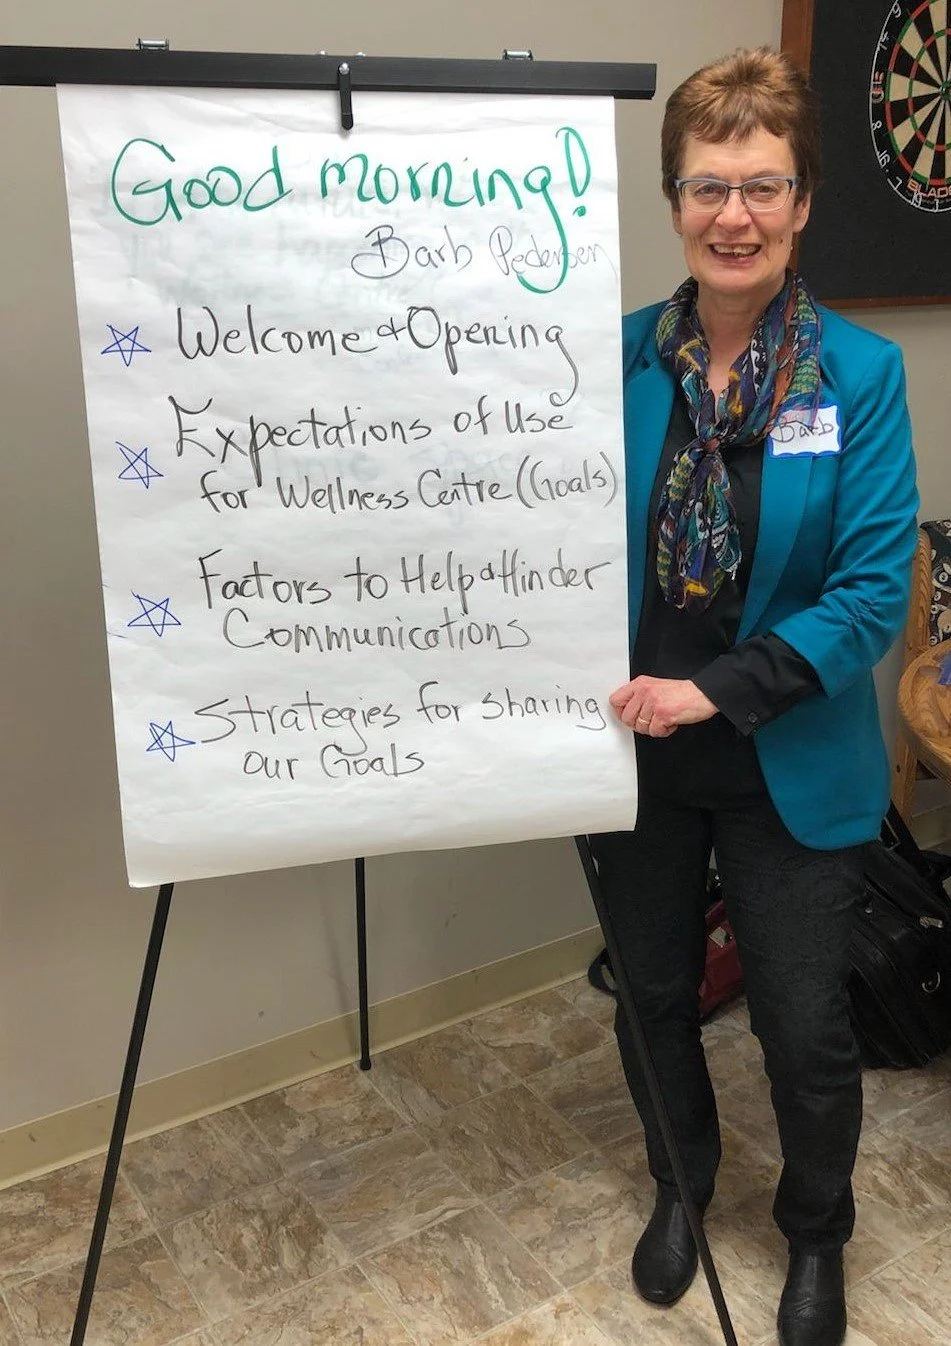 Good morning!
Barb Pedersen
Welcome & Opening
Expectations of Use
for Wellness Centre (Goals)
Factors to Help & Hinder
Communications
Strategies for sharing
our Goals
Barb